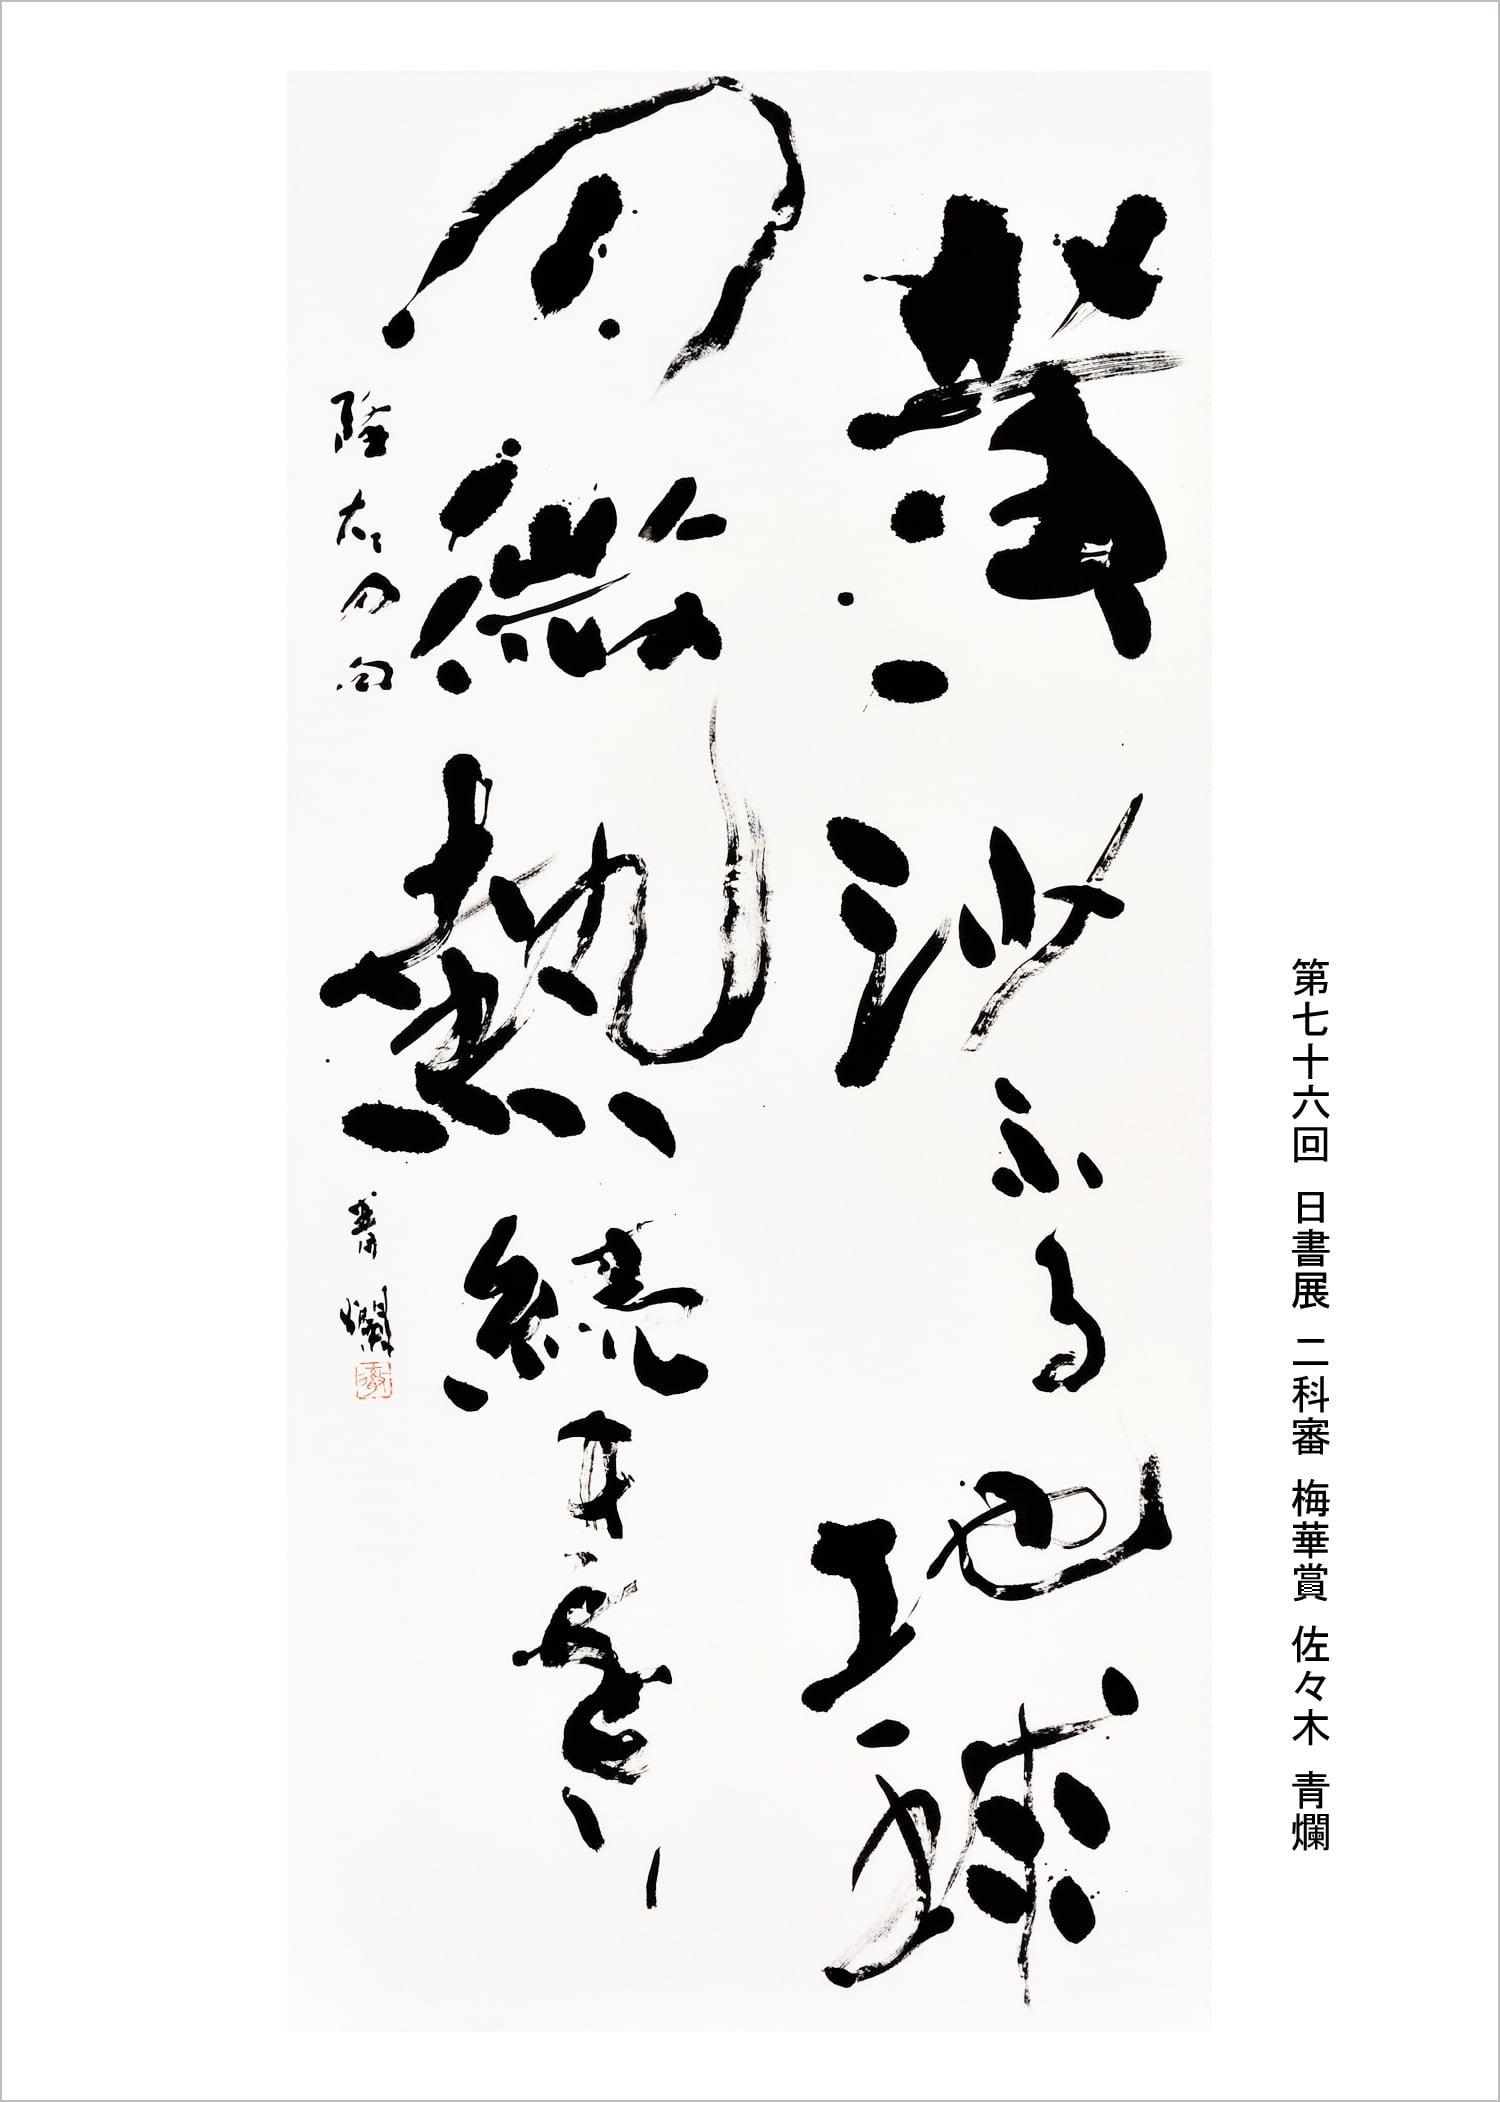 黄沙ふる地球
の微熱続きをり
隆太の句 青爛
第七十六回 日書展 二科審 梅華賞 佐々木 青爛